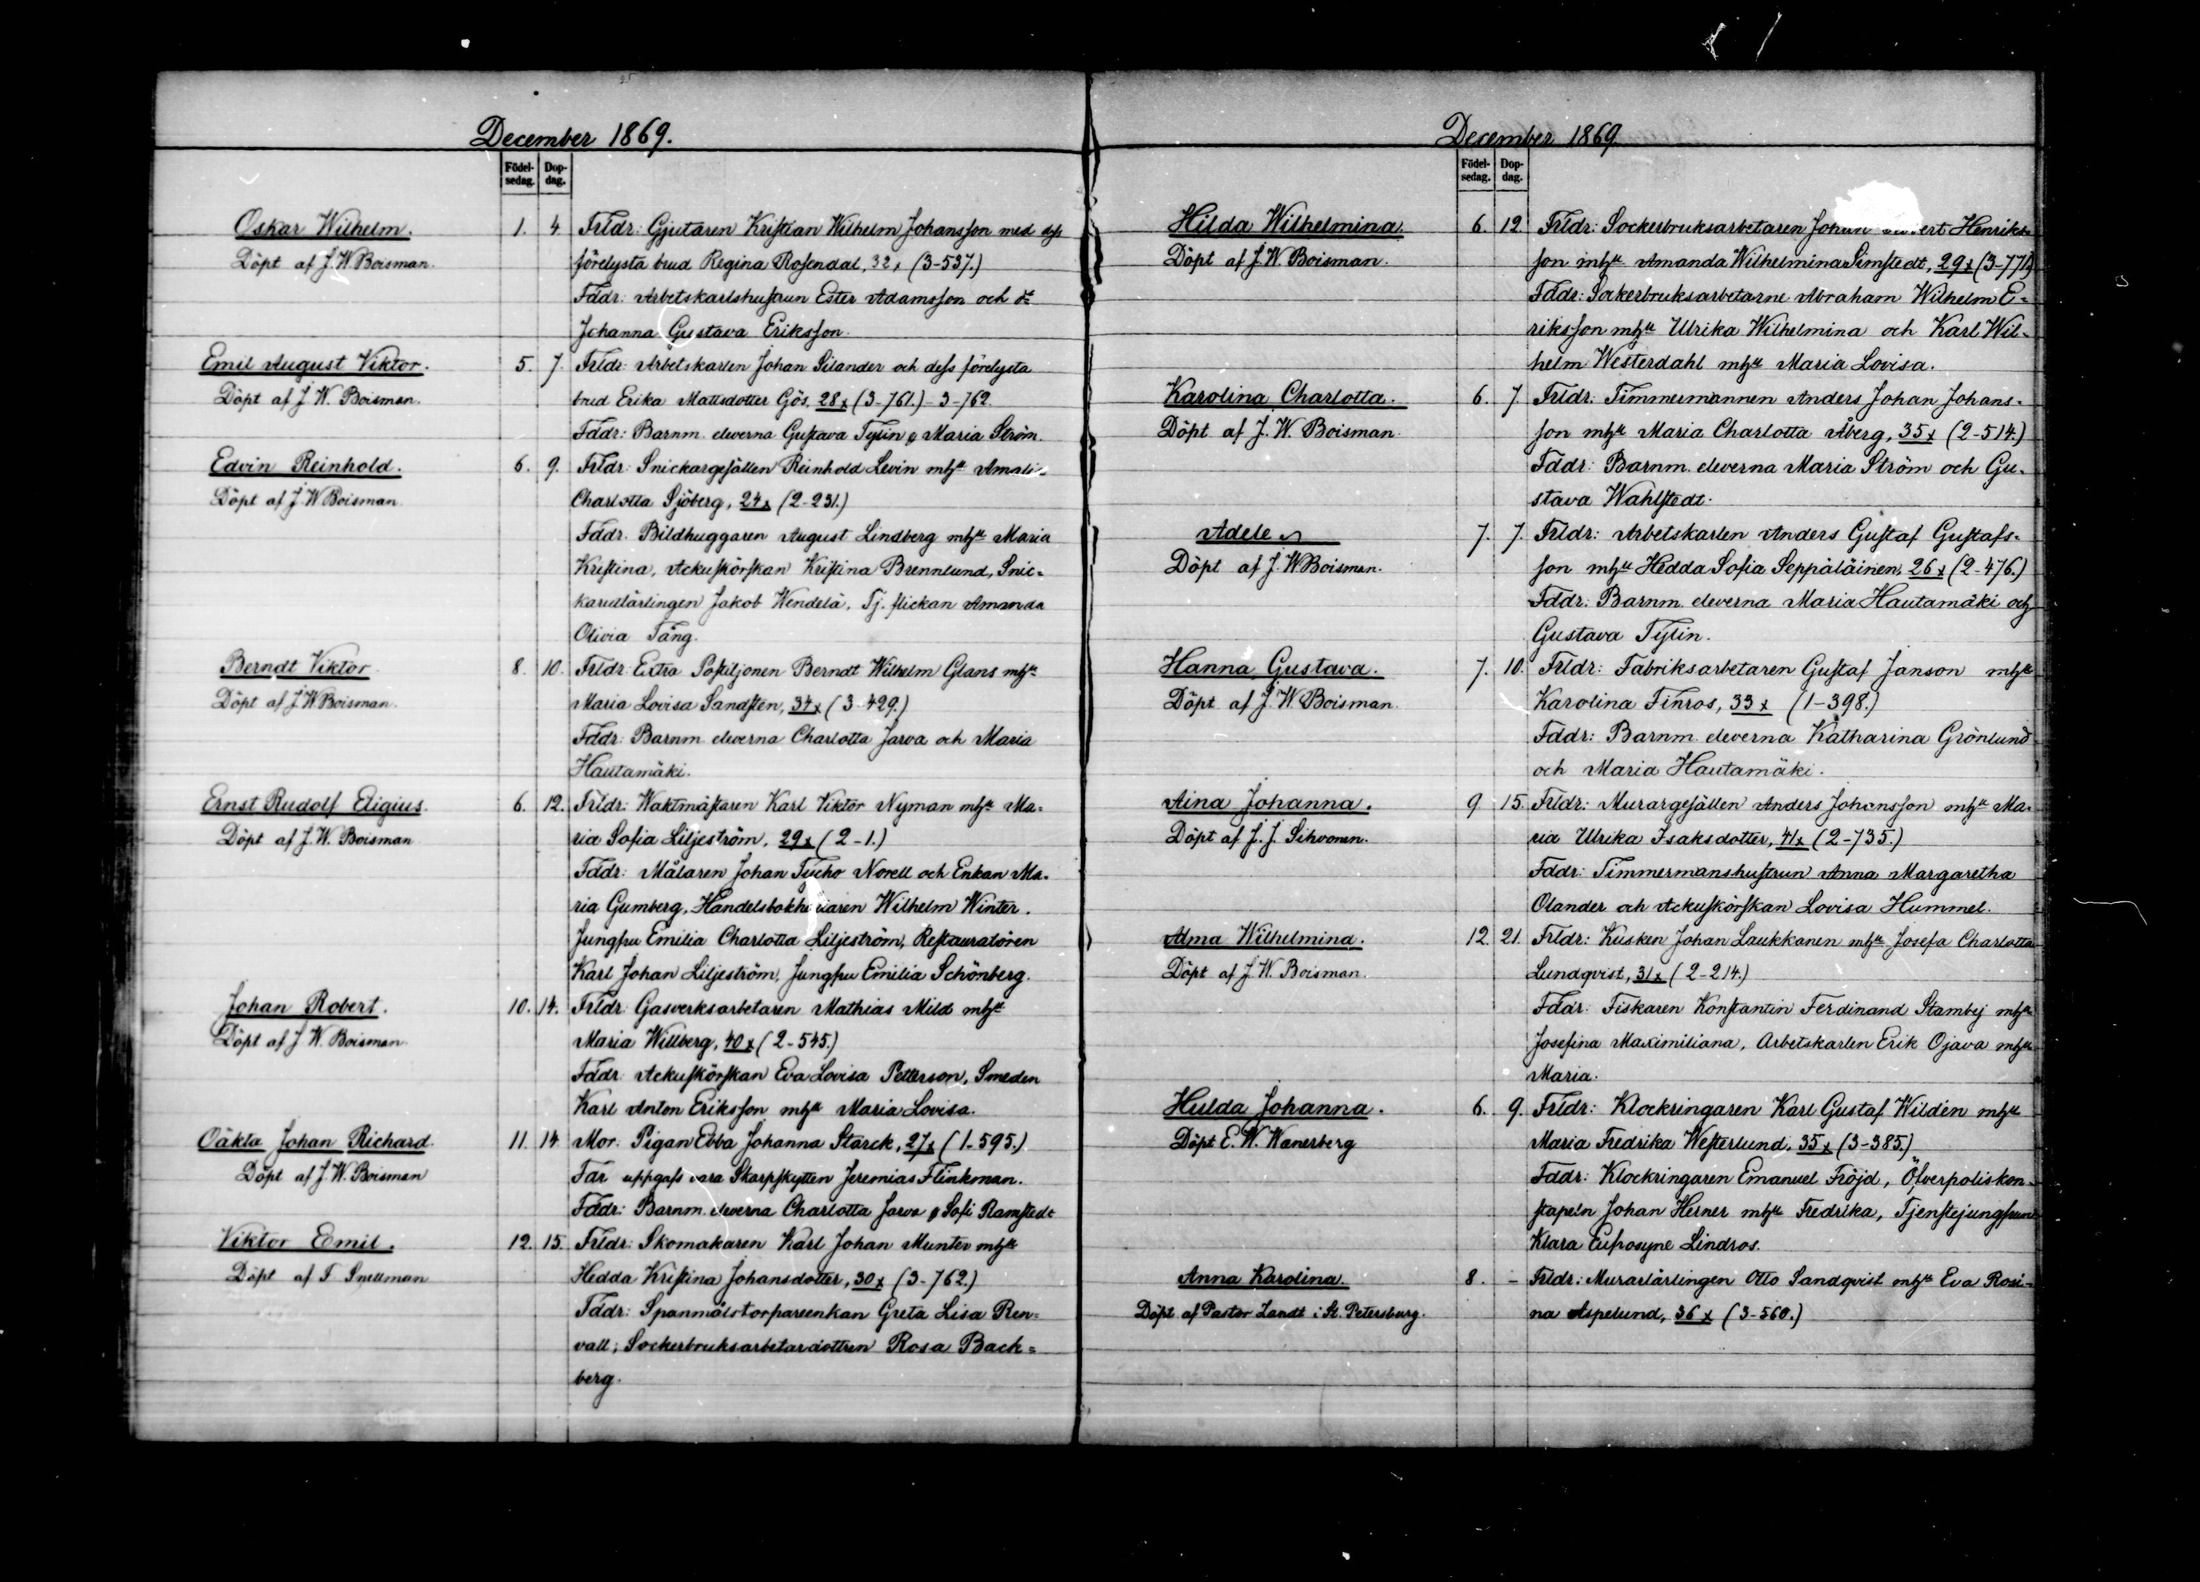 December 1869.
Födel-
sedag.
Dop-
dag.
Oskar Wilhelm.
Döpt af J. W. Boisman.
1. 4 Frldr: Gjutaren Kristian Wilhelm Johansson med dess
förelysta brud Regina Rosendal, 32, (3-537.)
Fddr: Arbetskarlshustrun Ester Adamsson och
Johanna Gustava Eriksson.
Emil August Viktor.
Döpt af J. W. Boisman.
5. 7. Frldr: Arbetskarlen Johan Silander och dess förelysta
brud Erika Mattsdotter Gös, 28x (3-761.) - 3-762.
Fddr: Barnm. eleverna Gustava Tylin o Maria Ström.
Edvin Reinhold.
Döpt af J. W. Boisman.
6. 9. Frldr: Snickargesällen Reinhold Levin mhu
Charlotta Sjöberg, 24x (2-231.)
Fddr. Bildhuggaren August Lindberg mhu Maria
Kristina, Ackuskörskan Kristina Brennlund, Snic-
karelärlingen Jakob Wendelä, Tj. flickan Amanda
Olivia Tång.
Berndt Viktor
Döpt af J. W. Boisman.
8. 10. Frldr: Extra Postiljonen Berndt Wilhelm Glans mhu
Maria Lovisa Sandsten, 34x (3-429.)
Fddr: Barnm. eleverna Charlotta Jarva och Maria
Hautamäki.
Ernst Rudolf Eligius.
Döpt af J. W. Boisman
6. 12. Frldr: Waktmästaren Karl Viktor Nyman mhu Ma-
ria Sofia Liljeström, 29x (2-1.)
Fddr: Målaren Johan Tycho Norell och Enkan Ma-
ria Gumberg, Wilhelm Winter.
Jungfru Emilia Charlotta Liljeström, Restauratören
Karl Johan Liljeström, Jungfru Emilia Schönberg.
Johan Robert.
Döpt af J. W. Boisman.
10. 14. Frldr: Gasverksarbetaren Mathias Mild mhu
Maria Willberg, 40x (2-545.)
Fddr: Ackuskörskan Eva Lovisa Petterson, Smeden
Karl Anton Eriksson mhu Maria Lovisa.
Oäkta Johan Richard.
Döpt af J. W. Boisman
11. 14 Mor: Pigan Ebba Johanna Starck, 27x (1-595.)
Far uppgafs vara Skarpskytten Jeremias Flinkman.
Fddr: Barnm. eleverna Charlotta Jarva o Sofi Ramstedt
Viktor Emil.
Döpt af F Snellman
12. 15. Frldr: Skomakaren Karl Johan Munter mhu
Hedda Kristina Johansdotter, 30x (3-762.)
Fddr: Spanmålstorpareenkan Greta Lisa Ren-
vall; Sockerbruksarbetardottren Rosa Back-
berg.
December 1869.
Födel-
sedag.
Dop-
dag.
Hilda Wilhelmina
Döpt af J. W. Boisman.
6. 12. Frldr: Sockerbruksarbetaren Johan Henriks-
son mhu Amanda Wilhelmina Simstedt, 29x
Fddr: Sockerbruksarbetarne Abraham Wilhelm E-
riksson mhu Ulrika Wilhelmina och Karl Wil-
helm Westerdahl mhu Maria Lovisa.
Karolina Charlotta.
Döpt af J. W. Boisman
6. 7. Frldr: Timmermannen Anders Johan Johans-
son mhu Maria Charlotta Åberg, 35x (2-514.)
Fddr: Barnm. eleverna Maria Ström och Gu-
stava Wahlstedt.
Adele
Döpt af J. W. Boisman.
7. 7. Frldr: Arbetskarlen Anders Gustaf Gustafs-
son mhu Hedda Sofia Seppäläinen, 26x (2-476.)
Fddr: Barnm. eleverna Maria Hautamäki och
Gustava Tylin.
Hanna Gustava.
Döpt af J. W. Boisman
7. 10. Frldr: Fabriksarbetaren Gustaf Janson mhu
Karolina Finros, 33x (1-398.)
Fddr: Barnm. eleverna Katharina Grönlund
och Maria Hautamäki.
Aina Johanna.
Döpt af J. J. Sihvonen.
9 15. Frldr: Murargesällen Anders Johansson mhu Ma-
ria Ulrika Isaksdotter, 41x (2-735.)
Fddr: Timmermanshustrun Anna Margaretha
Olander och Ackuskörskan Lovisa Hummel.
Alma Wilhelmina.
Döpt af J. W. Boisman.
12. 21. Frldr: Kusken Johan Laukkanen mhu Josefa Charlotta
Lundqvist, 31x (2-214.)
Fddr: Fiskaren Konstantin Ferdinand Stambej mhu
Josefina Maximiliana, Arbetskarlen Erik Ojava mhu
Maria.
Hulda Johanna.
Döpt E. W. Wanerberg
6. 9. Frldr: Klockringaren Karl Gustaf Wildén mhu
Maria Fredrika Westerlund, 35x (3-385.)
Fddr: Klockringaren Emanuel Fröjd, Öfverpoliskon-
stapeln Johan Herner mhu Fredrika, Tjenstejungfrun
Klara Eufrosyne Lindros.
Anna Karolina.
Döpt af Pastor Landt i St. Petersburg.
8. - Frldr: Murarlärlingen Otto Sandqvist mhu Eva Rosi-
na Aspelund, 36x (3-560.)